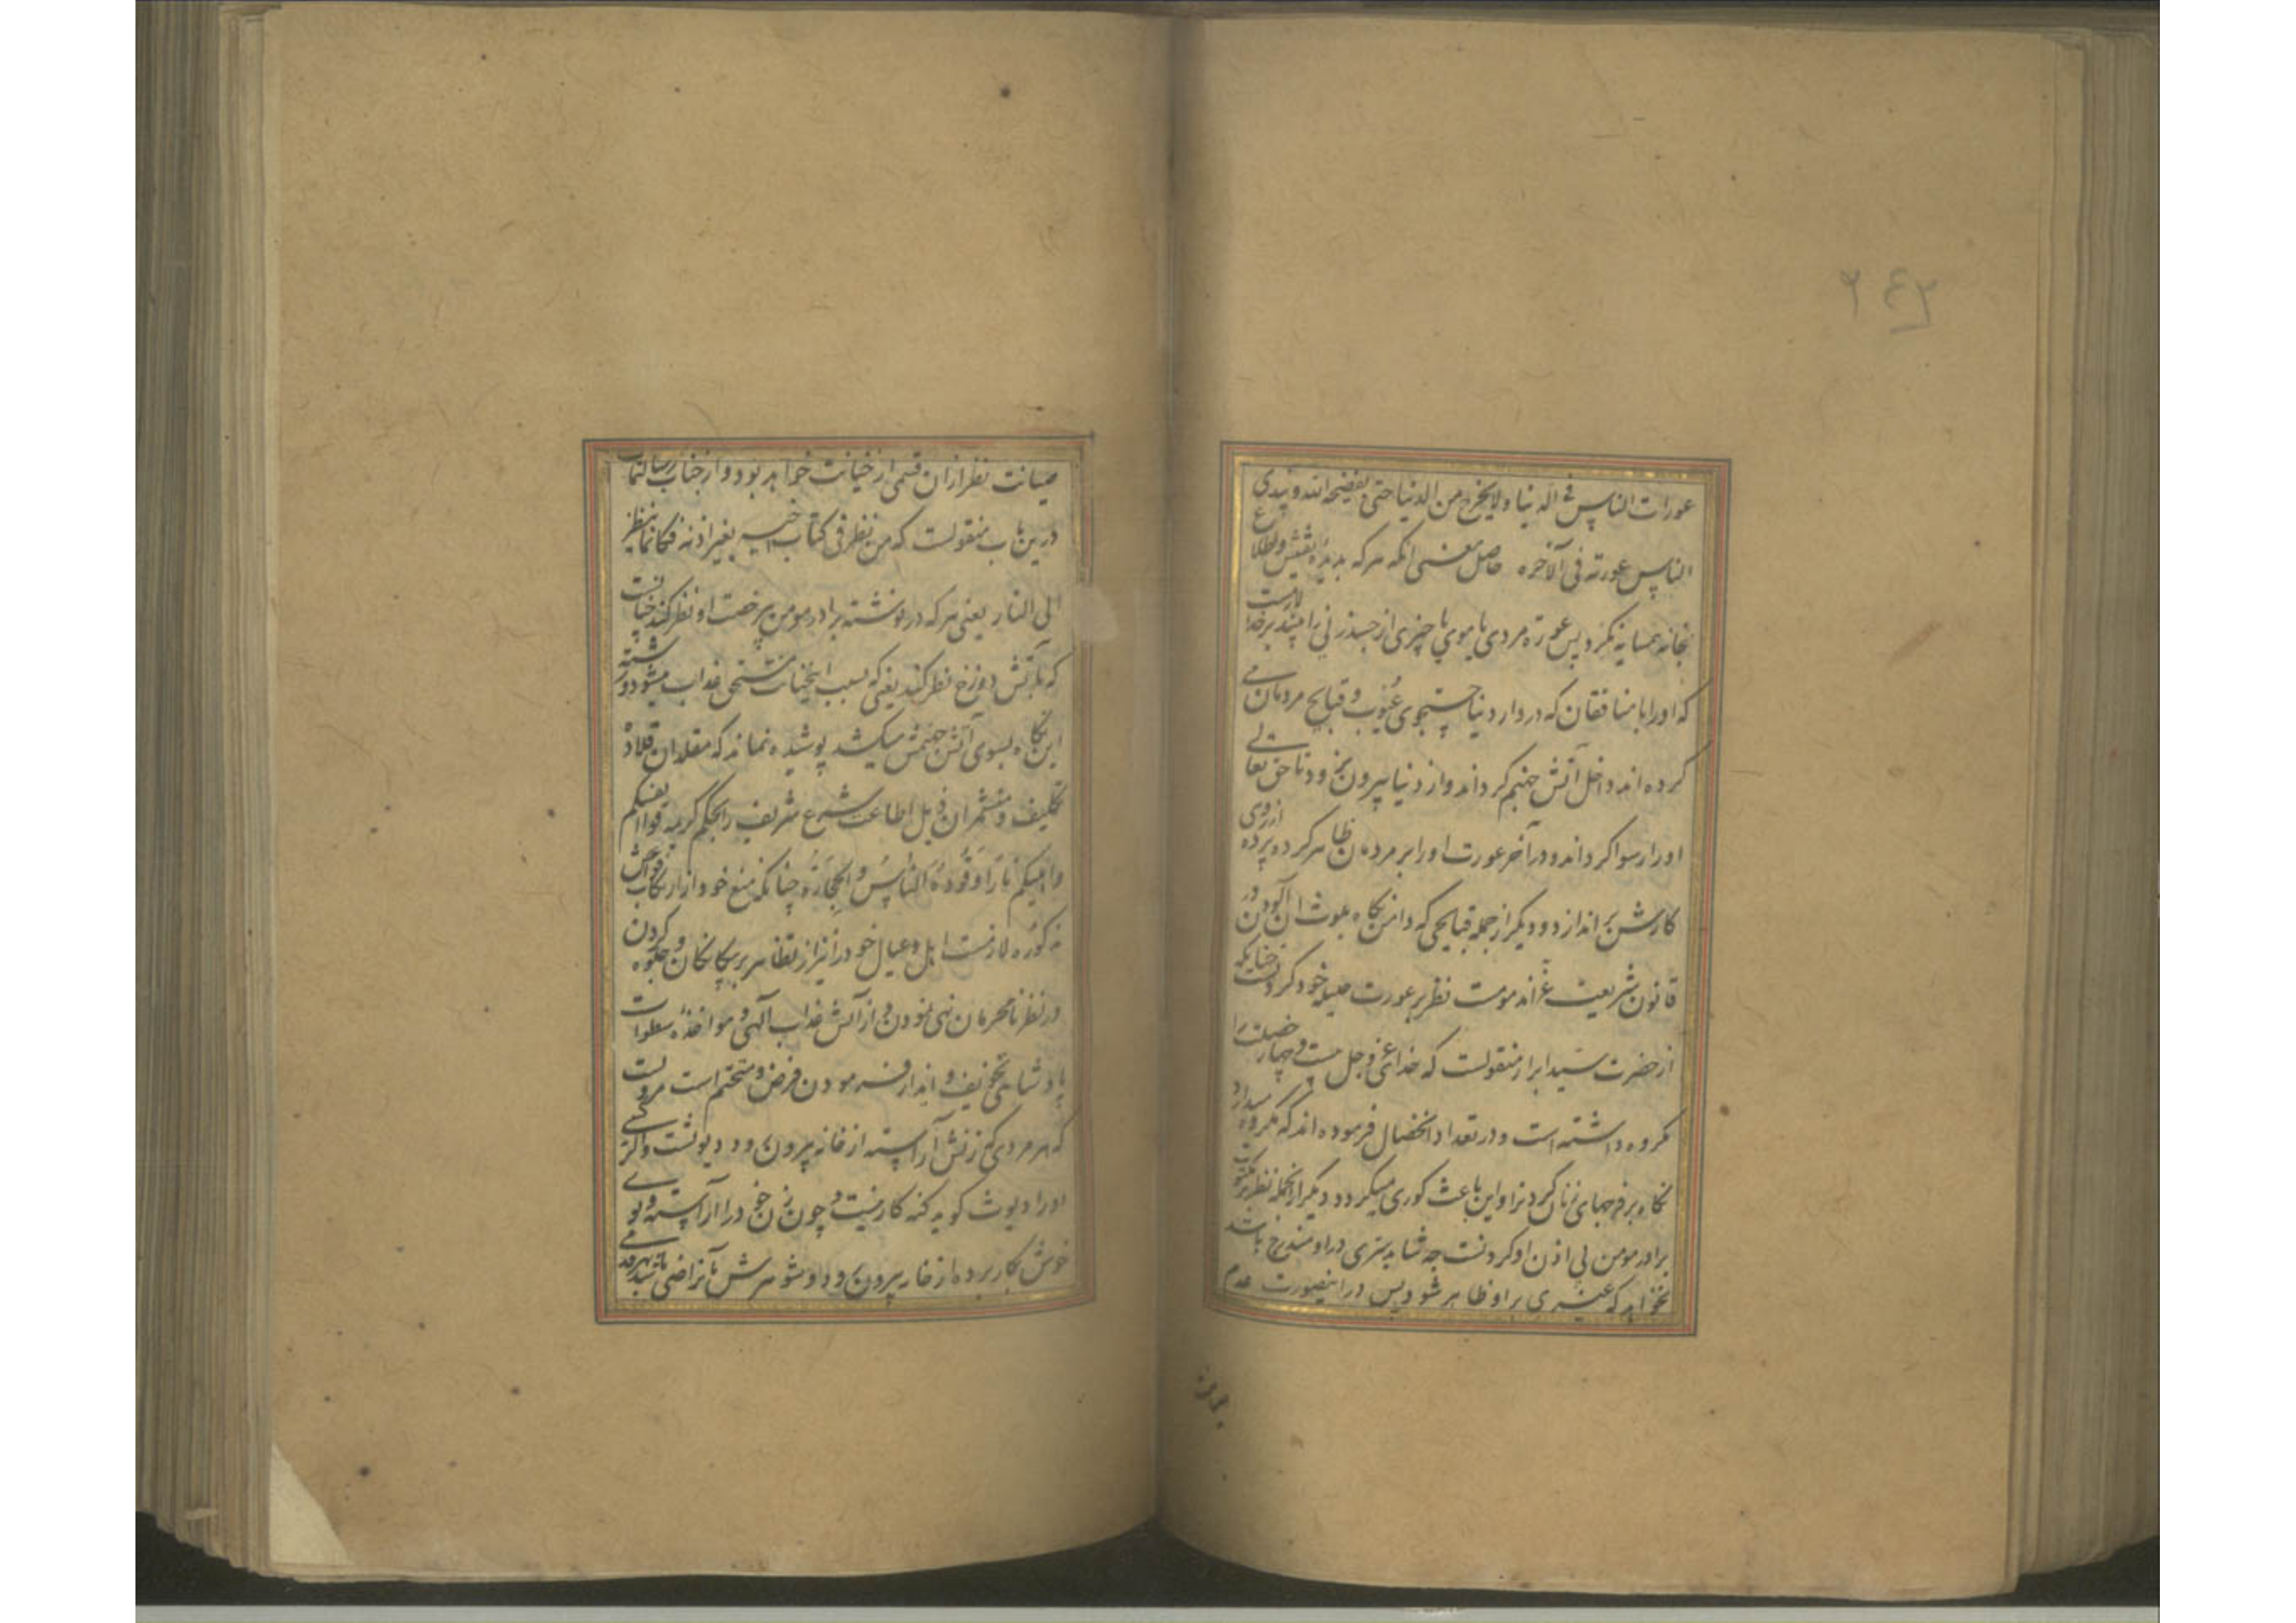 ۲۴۲
عورات الناس فی الدنیا ولا یخرج من الدنیا حتی یفضحه الله ویبدی
الناس عورته فی الآخره حاصل معنی آنکه هر که بدیده تفتیش واطلاع
بخانه همسایه نکرد پس عورة مردی یا موی یا چیزی از جسد زنی را بیند بر خدا لازمست
که اورا با منافقان که در دار دنیا جستجوی عیوب و قبایح مردمان می
کرده اند داخل آتش جهنم کرداند واز دنیا بیرون نرود تا حق تعالی
اورا رسوا کرداند ودر آخر عورت اورا بر مردمان ظاهر کرد پرده از روی
کارش بر اندازد ودیکر از جمله قبایحی که دامن نکاه بلوث آن آلودن در
قانون شریعت غرا مذمومست نظر بر عورت حلیله خود کردنست چنانکه
از حضرت سید ابرار منقولست که خدای عز وجل بیست و چهار خصلت را
مکروه داشته است ودر تعداد آنخصال فرموده اند که مکروه میدارد
نکاه بر فرجهای زنان کردنرا واین باعث کوری میکردد ودیکر ازانجمله نظر بر مکتوب
برادر مومن بی اذن او کردنست چه شاید سری در او مندرج باشد
نخواهد که غیری بر او ظاهر شود پس در اینصورت عدم
صیانت نظر از ان قسمی از خیانت خواهد بود و از جناب رسالتماب
درین باب منقولست که من نظر فی کتاب اخیه بغیر اذنه فکانما ینظر
الی النار یعنی هر که در نوشته برادر مومن بی رخصت او نظر کند چنانست
که بآتش دوزخ نظر کند یعنی که بسبب اینخیانت مستحق عذاب میشود ورشته
این نکاه بسوی آتش جهنمش میکشد پوشیده نماند که مقلدان قلاده
تکلیف ومتشمران ذیل اطاعت شرع شریف را بحکم کریمه قوا انفسکم
واهلیکم نارا وقودها الناس والحجارة چنانکه منع خود از ارتکاب فواحش
مذکوره لازمست اهل وعیال خود را نیز از تظاهر بر بیکانکان وجلوه کردن
در نظر نامحرمان نهی نمودن و از آتش عذاب آلهی و مواخذه سطوات
پادشاهی تخویف و انذار فرمودن فرض و متحتم است مرویست
که هر مردی که زنش آراسته از خانه بیرون رود دیوثست و اکر کسی
اورا دیوث کوید کنه کار نیست و چون زن خود را آراسته و بوی
خوش بکار برده از خانه بیرون رود و شوهرش بآن راضی باشد بهر قدمی